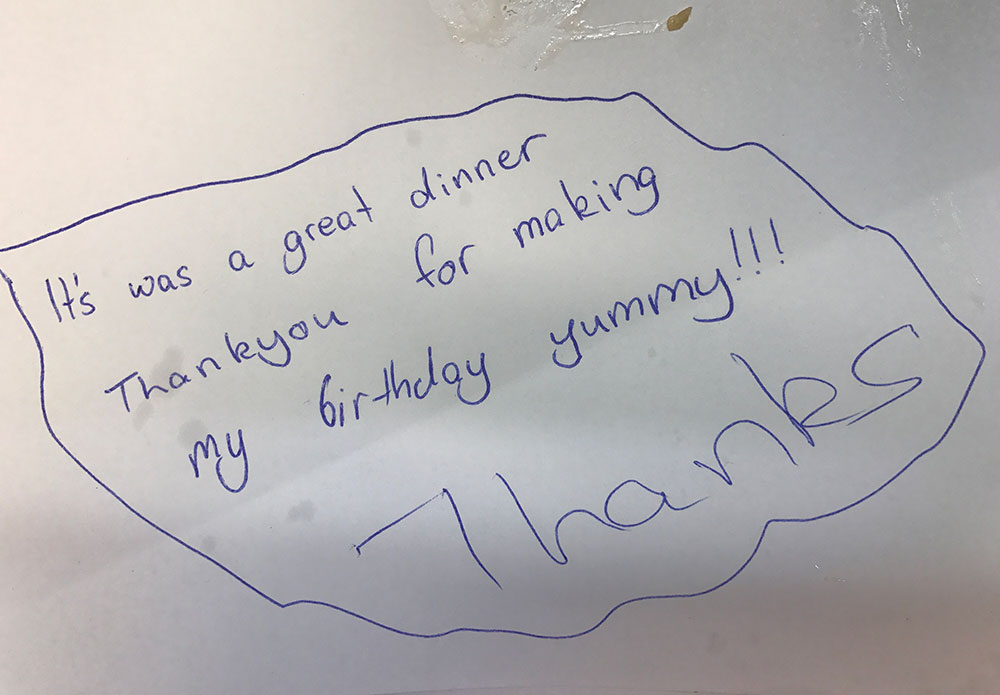 It's was a great dinner
Thankyou for making
my birthday yummy!!!
Thanks